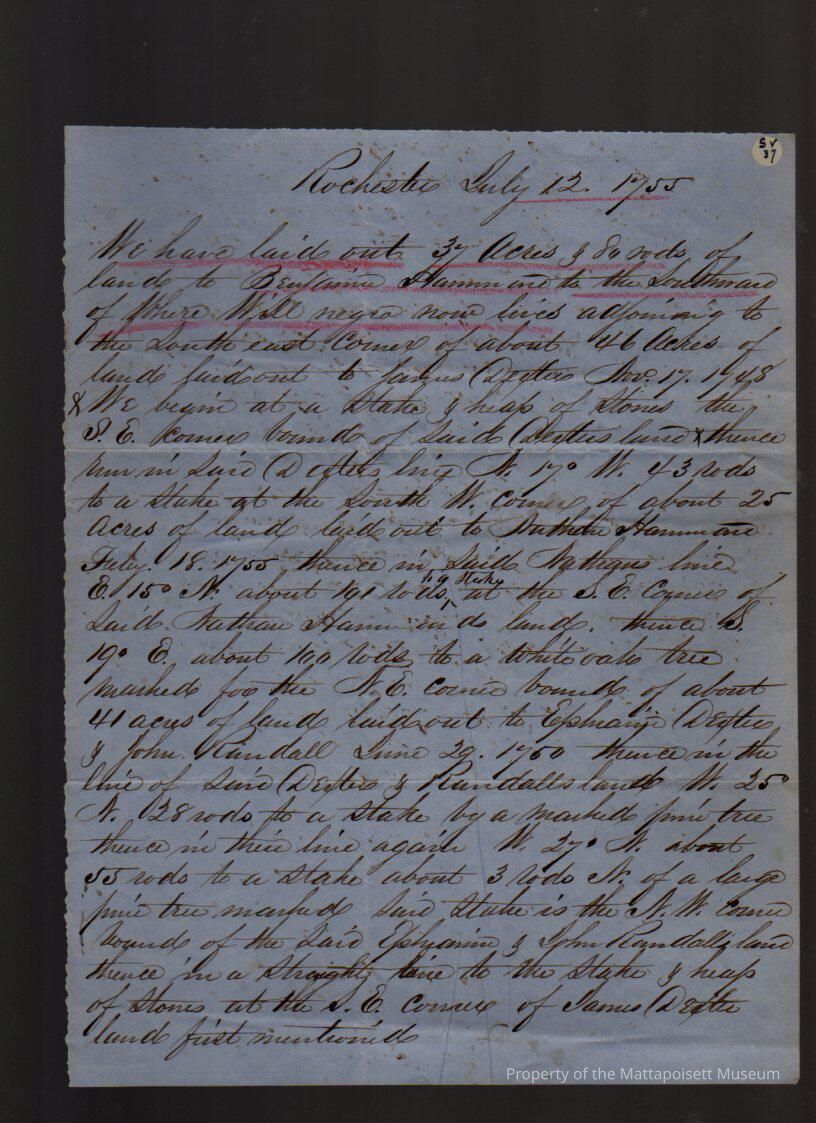 SV
37
Rochester July 12. 1755
We have laid out 37 Acres & 80 rods of
land to Benjamin Hammond to the Southward
of Where Will negro now lives adjoining to
the South east Corner of about 46 Acres of
land laid out to James Dexter Nov. 17. 1748
X We begin at a Stake & heap of Stones the
S. E. corner bound of Said Dexters land X thence
run in Said Dexters line N. 17° W. 43 rods
to a stake at the South W. corner of about 25
Acres of land laid out to Nathan Hammond
July. 18. 1755 thence in Said Nathans line
E. 15° N. about 191 rods to a Stake at the S. E. Corner of
Said Nathan Hammonds land. thence S.
19° E. about 100 rods to a White oak tree
marked for the N. E. corner bound of about
41 acres of land laid out to Ephraim Dexter
& John Randall June 29. 1750 thence in the
line of Said Dexters & Randalls land W. 25°
N. 28 rods to a stake by a marked pine tree
thence in their line again W. 27° N. about
55 rods to a stake about 3 rods N. of a large
pine tree marked Said Stake is the N. W. corner
bound of the Said Ephraim & John Randalls land
thence in a Straight line to the Stake & heap
of Stones at the S. E. corner of James Dexter
land first mentioned
Property of the Mattapoisett Museum